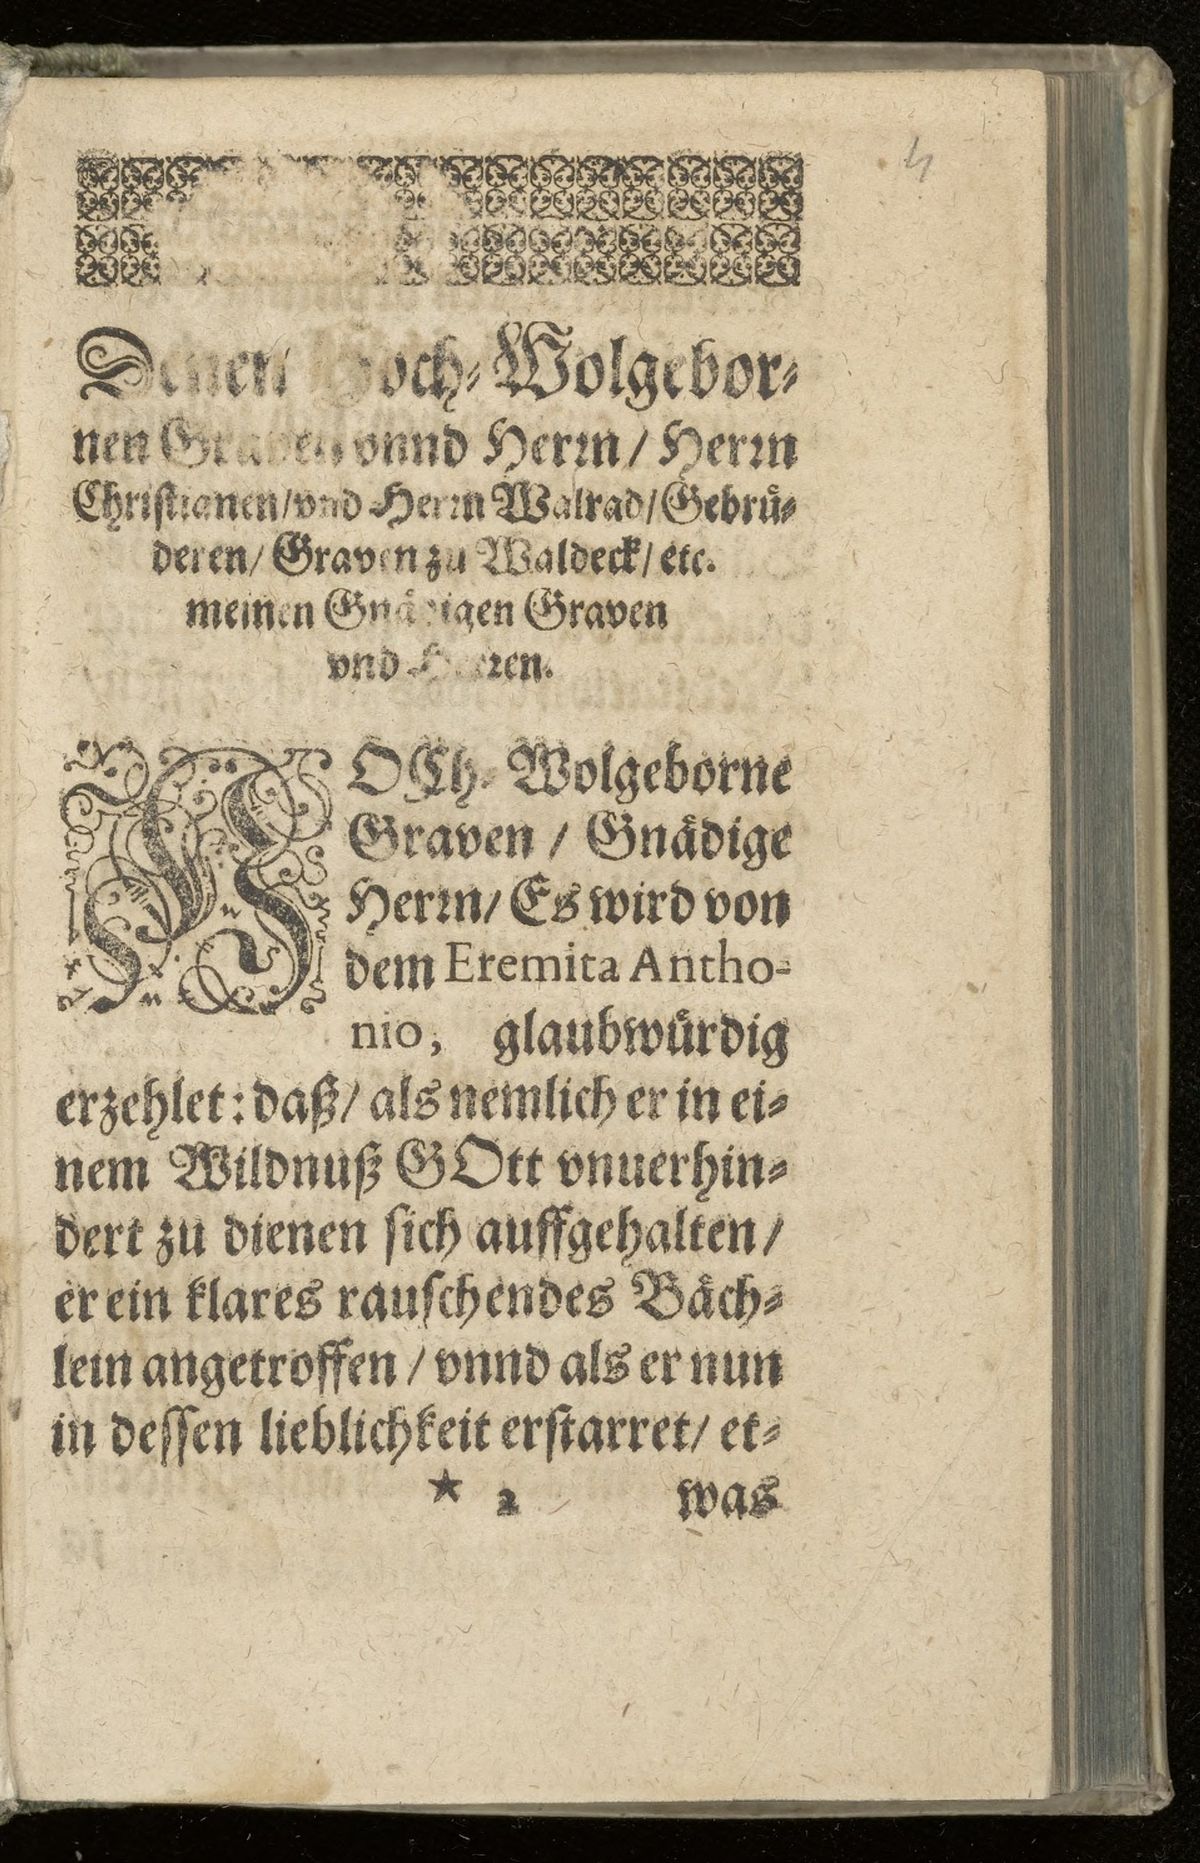 Denen Hoch-Wolgebor-
nen Graven vnnd Herrn / Herrn
Christianen/vnd Herrn Walrad/Gebrü-
deren/ Graven zu Waldeck/ etc.
meinen Gnädigen Graven
vnd Herren.
HOCh-Wolgeborne
Graven / Gnädige
Herrn/ Es wird von
dem Eremita Antho-
nio, glaubwürdig
erzehlet: daß/ als nemlich er in ei-
nem Wildnuß GOtt vnuerhin-
dert zu dienen sich auffgehalten/
er ein klares rauschendes Bäch-
lein angetroffen / vnnd als er nun
in dessen lieblichkeit erstarret/ et-
★ 2 was